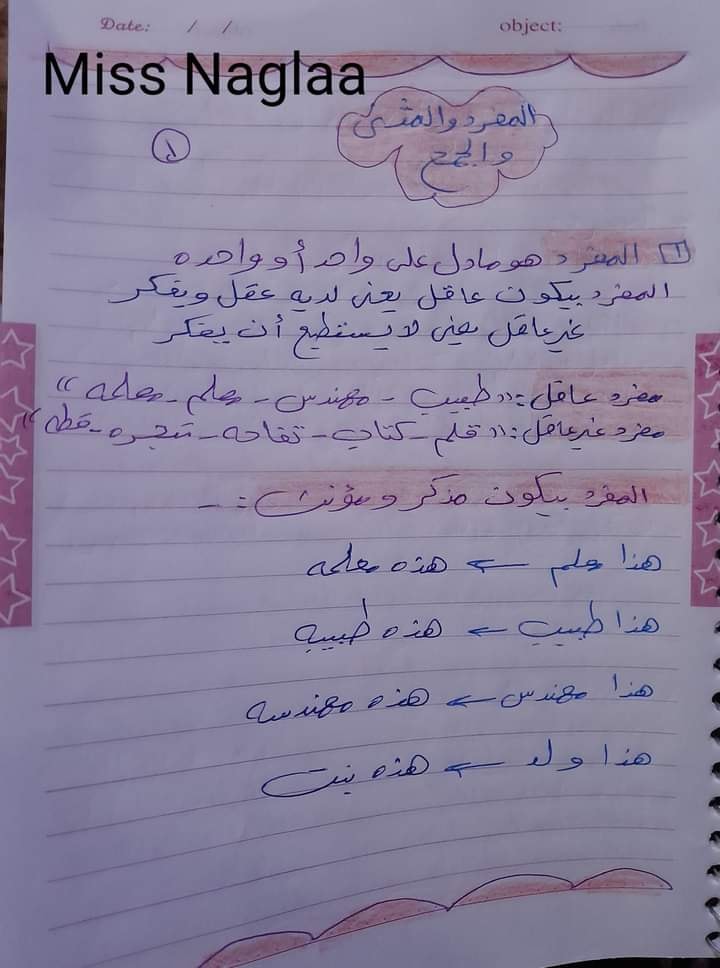 Date: / /
object:
Miss Naglaa
المفرد والمثنى
والجمع
١
١ المفرد هو مادل على واحد أو واحده
المفرد بيكون عاقل يعنى لديه عقل ويفكر
غير عاقل يعنى لا يستطيع أن يفكر
مفرد عاقل :(( طبيب - مهندس - معلم - معلمه ))
مفرد غير عاقل :(( قلم - كتاب - تفاحه - شجره - قطه ))
المفرد بيكون مذكر ومؤنث :-
هذا معلم ← هذه معلمه
هذا طبيب ← هذه طبيبه
هذا مهندس ← هذه مهندسه
هذا ولد ← هذه بنت